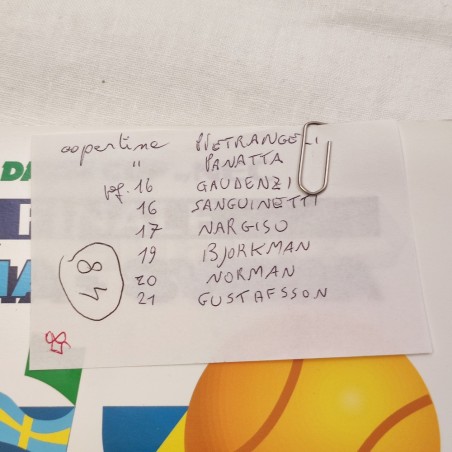 copertina PIETRANGELI
" PANATTA
pag. 16 GAUDENZI
16 SANGUINETTI
17 NARGISO
19 BJORKMAN
20 NORMAN
21 GUSTAFSSON
84
DA